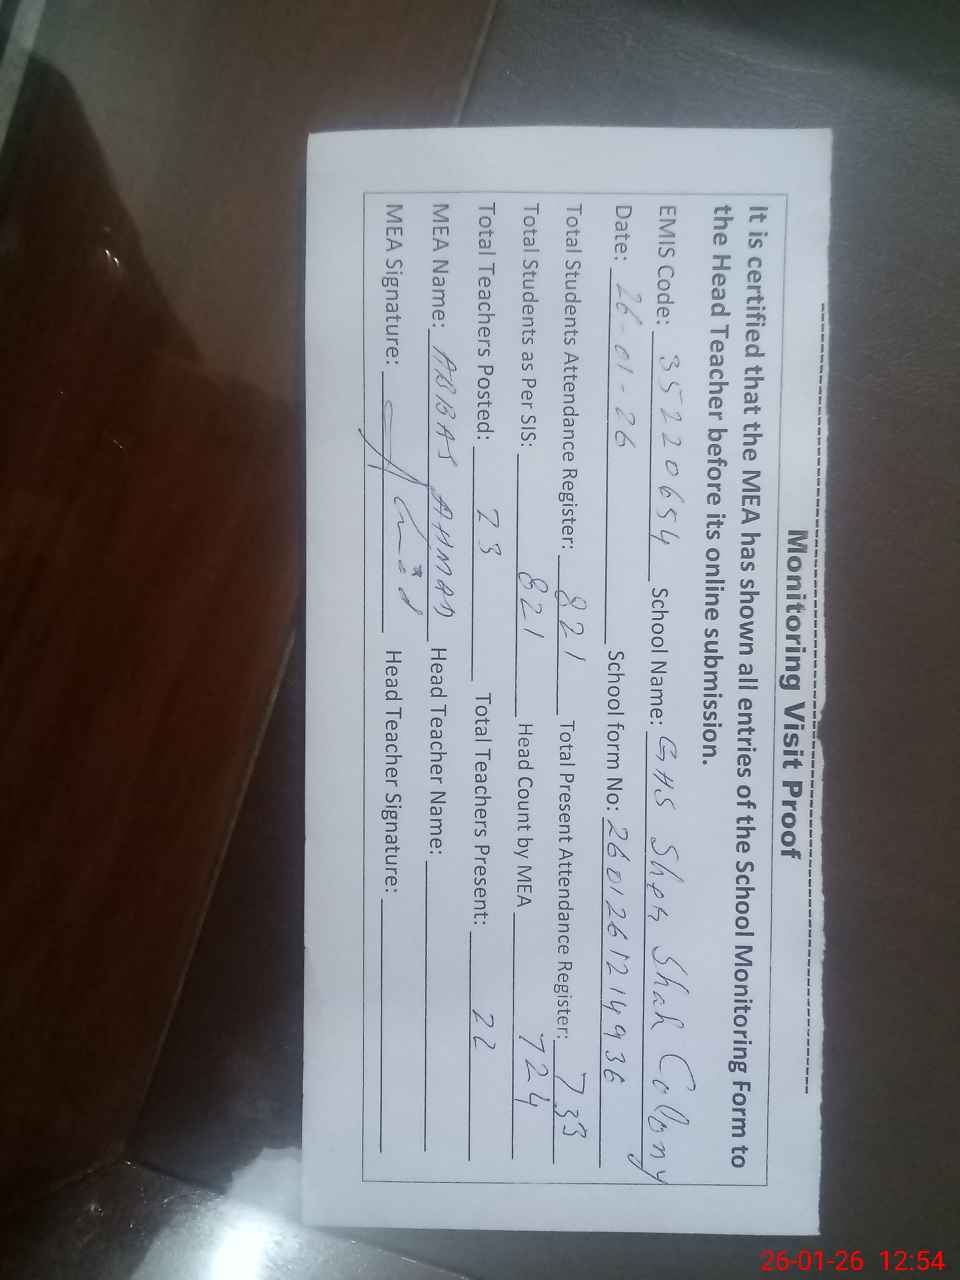 Monitoring Visit Proof
It is certified that the MEA has shown all entries of the School Monitoring Form to
the Head Teacher before its online submission.
EMIS Code: 35220654 School Name: GHS Sher Shah Colony
Date: 26-01-26 School form No: 2601261214936
Total Students Attendance Register: 821 Total Present Attendance Register: 733
Total Students as Per SIS: 821 Head Count by MEA 724
Total Teachers Posted: 23 Total Teachers Present: 22
MEA Name: ABBAS AHMAD Head Teacher Name:
MEA Signature: Head Teacher Signature:
26-01-26 12:54